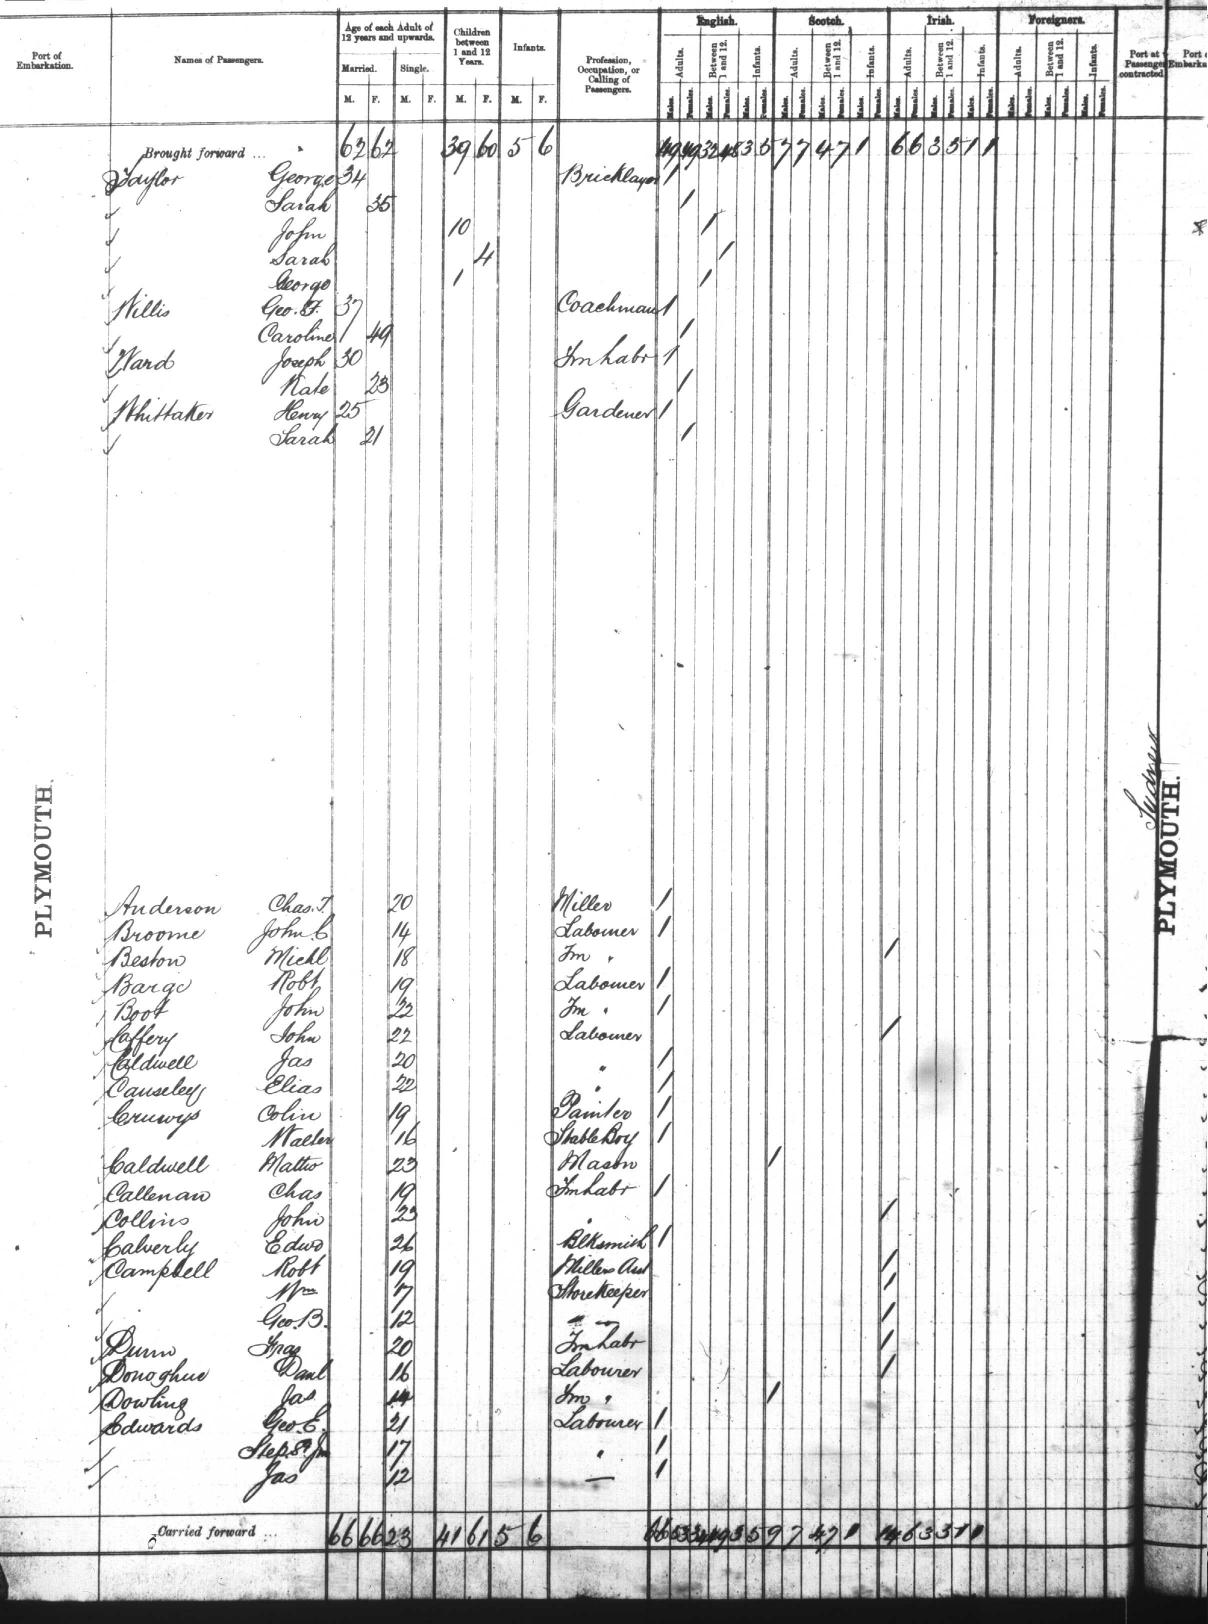 English. Scotch. Irish. Foreigners.
Port of Embarkation. Names of Passengers. Age of each Adult of 12 years and upwards. Children between 1 and 12 Years. Infants. Profession, Occupation, or Calling of Passengers. Adults. Between 1 and 12. Infants. Adults. Between 1 and 12. Infants. Adults. Between 1 and 12. Infants. Adults. Between 1 and 12. Infants. Port at Passenger contracted Port of Embarka
Married. Single.
M. F. M. F. M. F. M. F. Males. Females. Males. Females. Males. Females. Males. Females. Males. Females. Males. Females. Males. Females. Males. Females. Males. Females. Males. Females. Males. Females. Males. Females.
Brought forward ... 62 62 39 60 5 6 49 49 32 48 3 5 7 7 4 7 1 6 6 3 5 1 1
Taylor George 34 Bricklayer 1
Sarah 35 1
John 10 1
Sarah 4 1
George 1 1
Willis Geo. F. 37 Coachman 1
Caroline 49 1
Ward Joseph 30 Fmlabr 1
Kate 23 1
Whittaker Henry 25 Gardener 1
Sarah 21 1
PLYMOUTH.
Sydney
PLYMOUTH.
Anderson Chas. T. 20 Miller 1
Broome John C 14 Labourer 1
Beston Michl 18 Fm " 1
Barge Robt 19 Labourer 1
Boot John 22 Fm " 1
Caffery John 22 Labourer 1
Caldwell Jas 20 " 1
Causeley Elias 22 " 1
Cruwys Colin 19 Painter 1
Walter 16 Stable Boy 1
Caldwell Mattw 23 Mason 1
Callenan Chas 19 Fmlabr 1
Collins John 23 " 1
Calverly Edwd 26 Blksmith 1
Campbell Robt 19 Millers Asst 1
Wm 17 Storekeeper 1
Geo. B. 12 " " 1
Dunn Fras 20 Fmlabr 1
Donoghue Danl 16 Labourer 1
Dowling Jas 14 Fm " 1
Edwards Geo. E. 21 Labourer 1
17 " 1
Jas 12 — 1
Carried forward ... 66 66 23 41 61 5 6 66 53 34 49 3 5 9 7 4 7 1 14 6 3 3 1 1